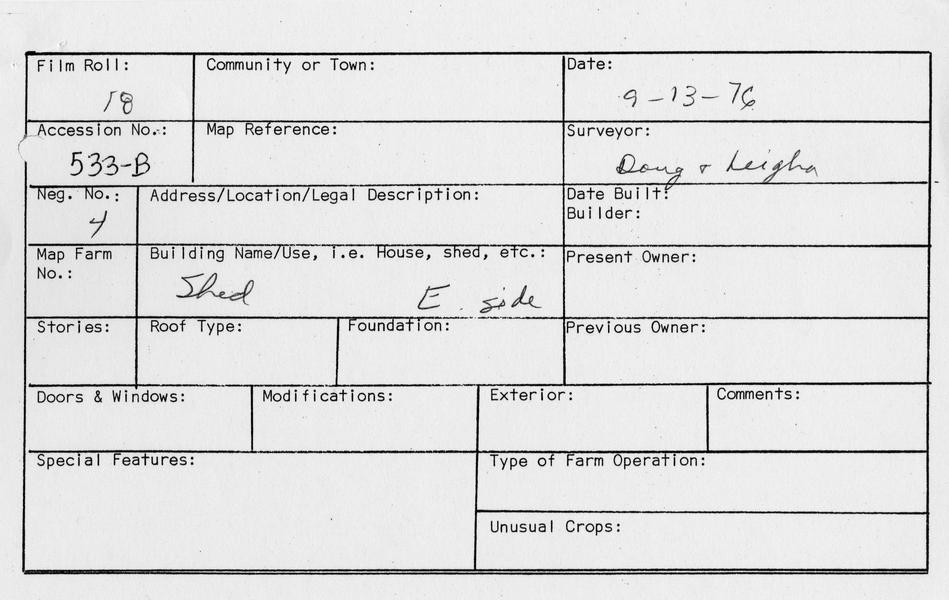 Film Roll:
18
Community or Town:
Date:
9-13-76
Accession No.:
533-B
Map Reference:
Surveyor:
Doug + Leigha
Neg. No.:
4
Address/Location/Legal Description:
Date Built:
Builder:
Map Farm
No.:
Building Name/Use, i.e. House, shed, etc.:
Shed E. side
Present Owner:
Stories:
Roof Type:
Foundation:
Previous Owner:
Doors & Windows:
Modifications:
Exterior:
Comments:
Special Features:
Type of Farm Operation:
Unusual Crops: